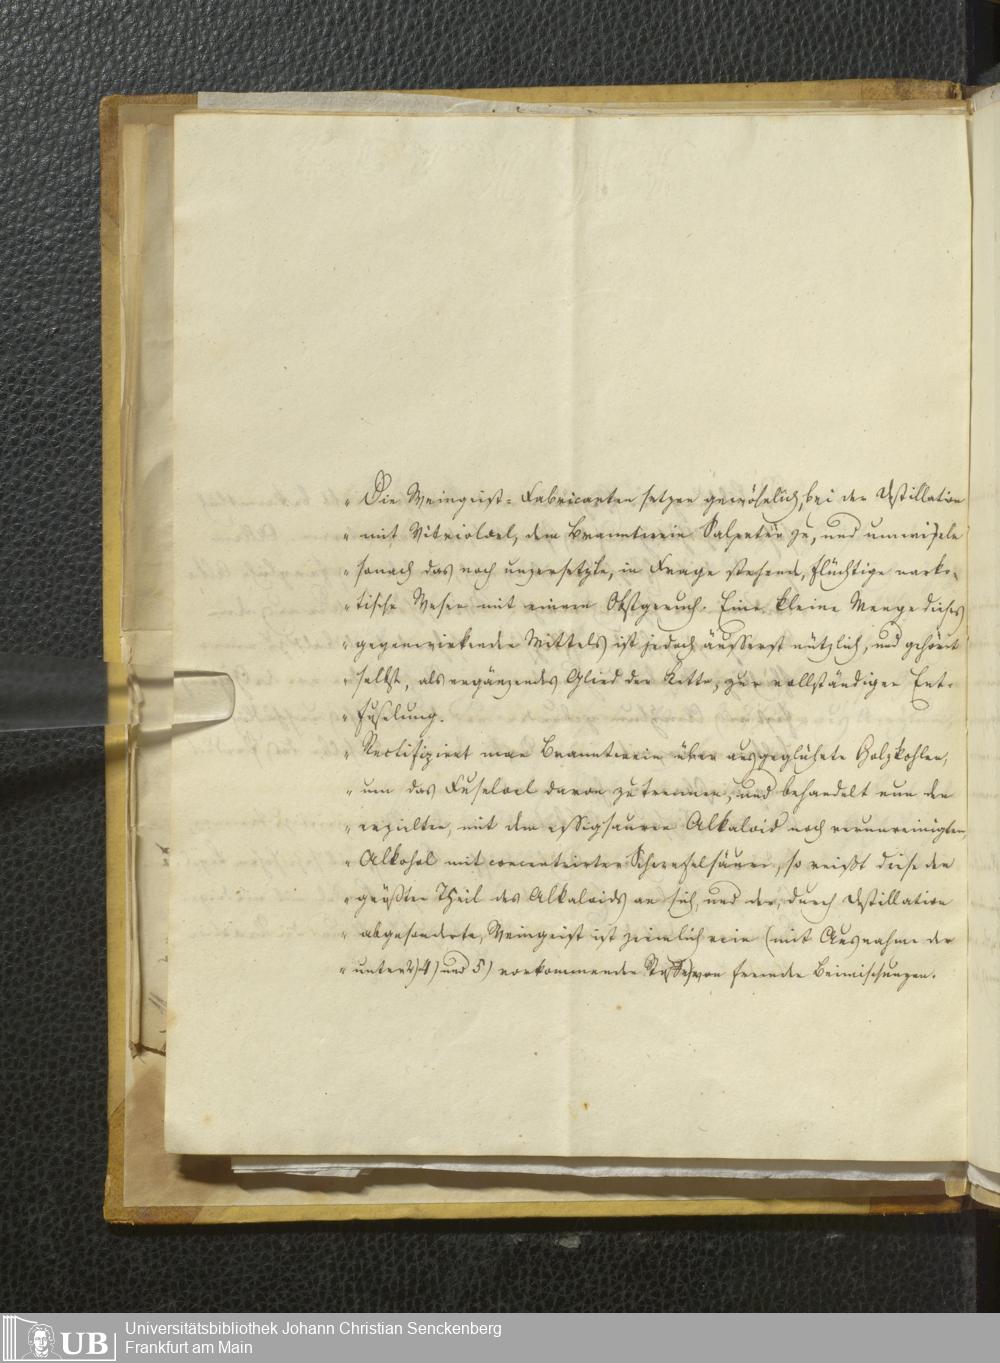 „ Die Weingeist=Fabricanten setzen gewöhnlich, bei der Destillation
„ mit Vitrioloel, dem Branntwein Salpeter zu, und umwickeln
„ sonach das noch unzersetzte, in Frage stehende, flüchtige narko-
„ tische Wesen mit einem Obstgeruch. Eine kleine Menge dieses
„ gegenwirkenden Mittels ist jedoch äusserst nützlich, und gehört
„ selbst, als ergänzendes Glied der Kette, zur vollständigen Ent-
„ fuselung.
„ Rectifizirt man Branntwein über ausgeglühete Holzkohlen,
„ um das Fuseloel davon zu trennen, und behandelt nun den
„ erzielten, mit dem essigsauren Alkaloid noch verunreinigten,
„ Alkohol mit concentrirter Schwefelsäure, so reißt diese den
„ größten Theil des Alkaloids an sich, und der, durch Destillation
„ abgesonderte, Weingeist ist ziemlich rein (mit Ausnahme der
„ unter 4) und 5) vorkommenden Stoffe) von fremden Beimischungen.
UB
Universitätsbibliothek Johann Christian Senckenberg
Frankfurt am Main